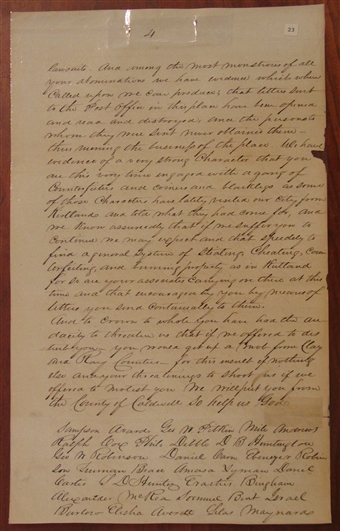 4
22
lawsuits. And among the most monstrous of all
your abominations we have evidence which when
Called upon we can produce, that letters sent
to the Post Office in this place have been opened
and read and distroyed, and the persons to
whom they were sent never obtained them
thus ruining the business of the place. We have
evidence of a very strong Character that you
are this very time engaged with a gang of
Counterfeiters and coiners and blacklegs as some
of those Characters have lately visited our City from
Kirtland and told what they had come for, and
we know assuredly that if we suffer you to
Continue we may expect and that speedily to
find a general System of Stealing, Cheating, Coun
terfeiting, and burning property as in Kirtland
for so are your associates Carrying on there at this
time and that encouraged by you by means of
letters you send Continually to them.
And to Crown the whole you have had the au
dacity to threaten us that if we offered to dis
turb you you would get up a mob from Clay
and Ray Counties for this insult if nothing
else and your threatenings to shoot us if we
offered to molest you We will put you from
the County of Caldwell So help us God
Sampson Avard Geo W
Ralph Philo Dibble D B Huntington
Geo W Robinson Ebenezer Robin
son Truman Amasa Lyman Daniel
Carter Erastus Bingham
Alexander McRea Israel
Barlow Elisha Averett Silas Maynard